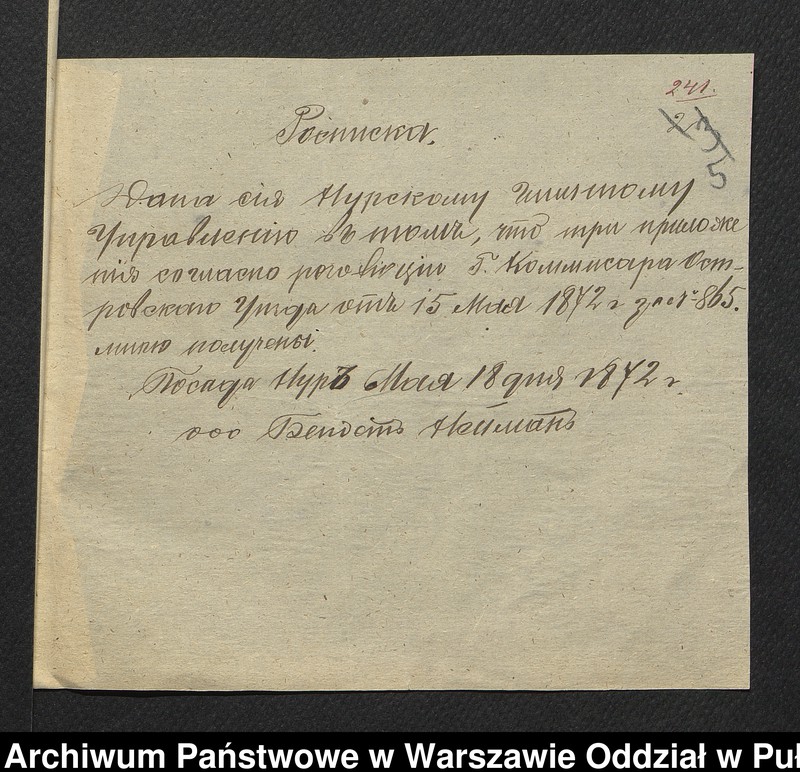 241.
235
Росписка.
Дана сія Нурскому гминному
Управленію въ томъ, что три приложе
нія согласно резолюціи Г. Коммисара Ост-
ровскаго Уезда отъ 15 Мая 1872 г за № 865.
мною получены.
Посада Нуръ Мая 18 дня 1872 г.
ооо Нейманъ
Archiwum Państwowe w Warszawie Oddział w Puł